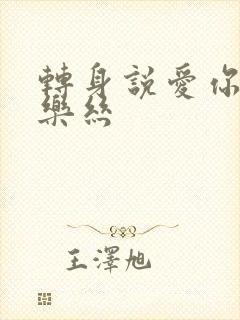 轉身說愛你
樂絲
王澤旭